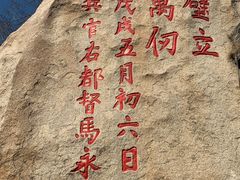 壁立
萬仞
戊戌五月初六日
兵官右都督馬永